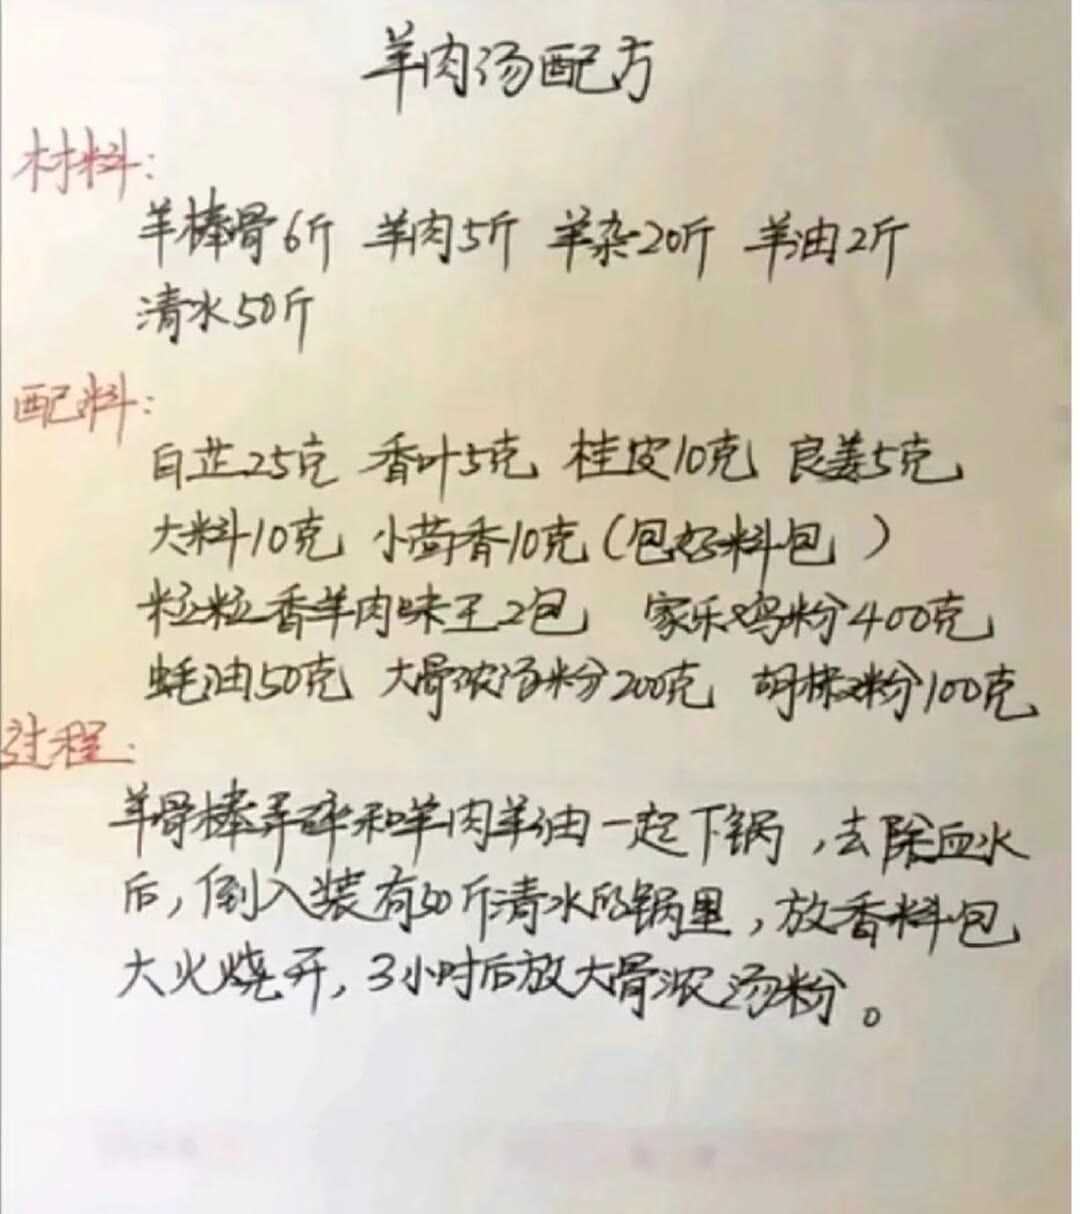 羊肉汤配方
材料:
羊棒骨6斤 羊肉5斤 羊杂20斤 羊油2斤
清水50斤
配料:
白芷25克 香叶5克 桂皮10克 良姜5克
大料10克 小茴香10克(包好料包)
粒粒香羊肉味王2包 家乐鸡粉400克
蚝油50克 大骨浓汤粉200克 胡椒粉100克
过程:
羊骨棒弄碎和羊肉羊油一起下锅,去除血水
后,倒入装有50斤清水的锅里,放香料包
大火烧开,3小时后放大骨浓汤粉。